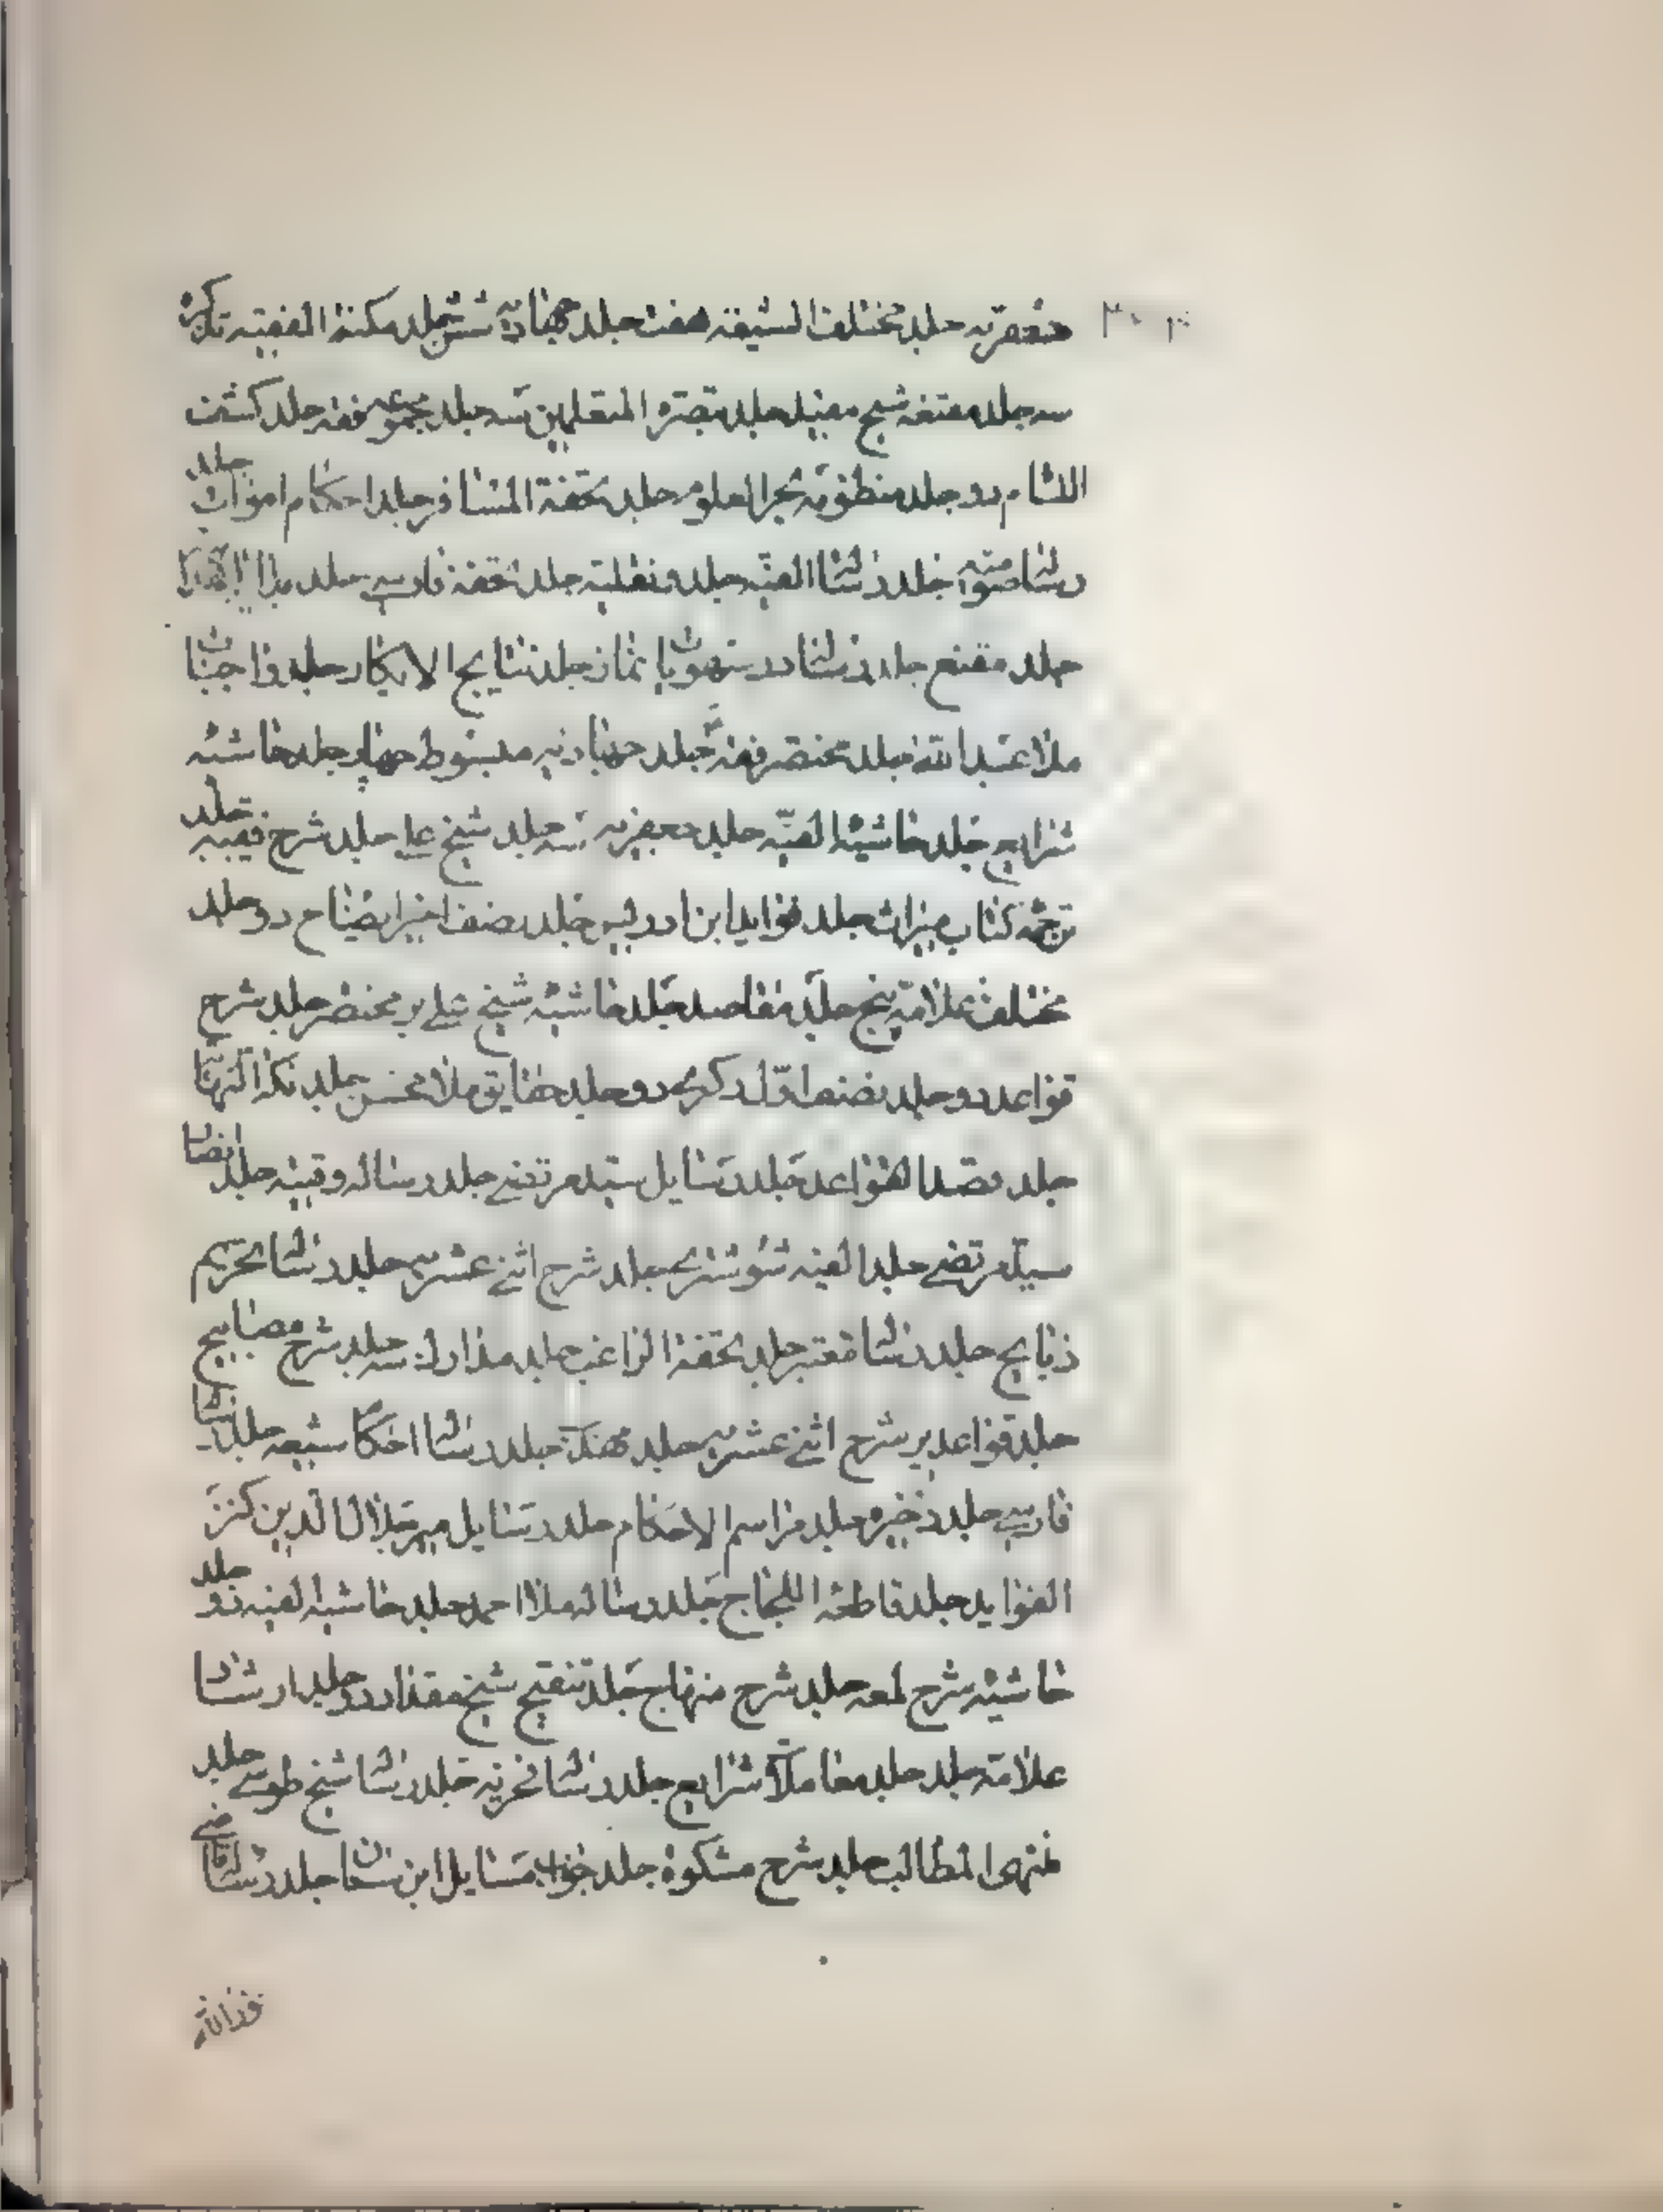 جعفریه جلد مختلف الشیعه هفت جلد جهادیه شش جلد نکته الفقیه تذکره
سه جلد مقنعه شیخ مفید جلد تبصره المتعلمین سه جلد مجموعه فقه جلد کشف
اللثام دو جلد منظومه بحر العلوم جلد تحفة المسافر جلد احکام اموات جلد
رسالۀ جلد رسالۀ الفیه جلد و نفلیه جلد تحفه فارسی جلد
جلد مقنع جلد رسالۀ در سهویات نماز جلد نتایج الافکار جلد واجبات
ملا عبدالله جلد مختصر فقه جلد جهادیه مبسوط چهار جلد حاشیه
شرایع جلد حاشیه الفیه جلد جعفریه سه جلد شیخ علی جلد شرح جلد
ترجمه کتاب میراث جلد فواید ابن ادریس جلد نصف اخیر ایضاح دو جلد
مختلف علامه پنج جلد مقاصد جلد حاشیه شیخ علی بر مختصر جلد شرح
قواعد دو جلد نصف اول ذکری دو جلد حقایق ملا محسن جلد
جلد نضد القواعد جلد رسایل سید مرتضی جلد رساله وقتیه جلد انتصار
سید مرتضی جلد الفیه شوشتری جلد شرح اثنی عشریه جلد رسالۀ تحریم
ذبایح جلد رسالۀ معتبر جلد تحفة الراغب جلد مدارک سه جلد شرح مصابیح
جلد قواعد بر شرح اثنی عشریه جلد جلد رسالۀ احکام شیعه جلد رسالۀ
فارسی جلد ذخیره جلد مراسم الاحکام جلد رسایل میر جلال الدین کنز
الفواید جلد قاطعة اللجاج جلد رساله ملا احمد جلد حاشیه الفیه دو جلد
حاشیه شرح لمعه جلد شرح منهاج جلد تنقیح شیخ مقداد دو جلد ارشاد
علامه جلد جلد معاملات شرایع جلد رسالۀ فخریه جلد رسالۀ شیخ طوسی جلد
منتهی المطالب جلد شرح مشکوة جلد جواب مسایل ابن سنان جلد رسالۀ قاضی